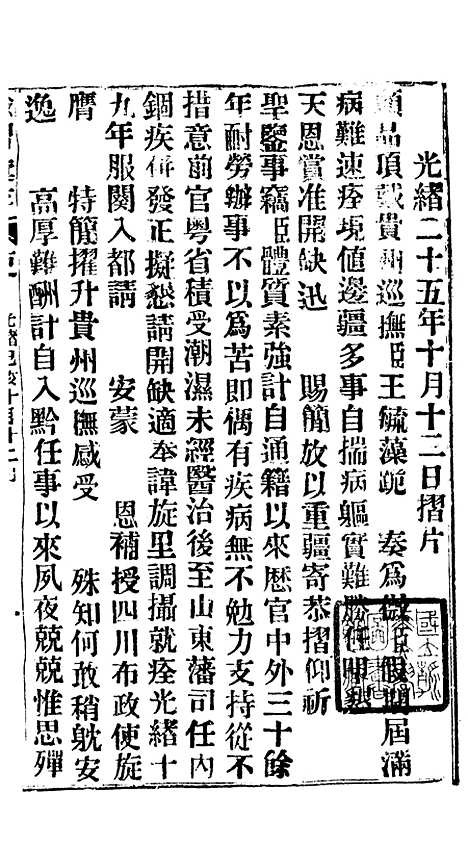 光緒二十五年十月十二日摺片
頭品頂戴貴州巡撫臣王毓藻跪 奏爲微臣假期屆滿
病難速痊現值邊疆多事自揣病軀實難勝任
天恩賞准開缺迅 賜簡放以重疆寄恭摺仰祈
聖鑒事竊臣體質素強計自通籍以來歷官中外三十餘
年耐勞辦事不以爲苦即偶有疾病無不勉力支持從不
措意前官粤省積受潮濕未經醫治後至山東藩司任內
錮疾併發正擬懇請開缺適奉諱旋里調攝就痊光緒十
九年服闋入都請 安蒙 恩補授四川布政使旋
膺 特簡擢升貴州巡撫感受 殊知何敢稍躭安
逸 高厚難酬計自入黔任事以來夙夜兢兢惟思殫